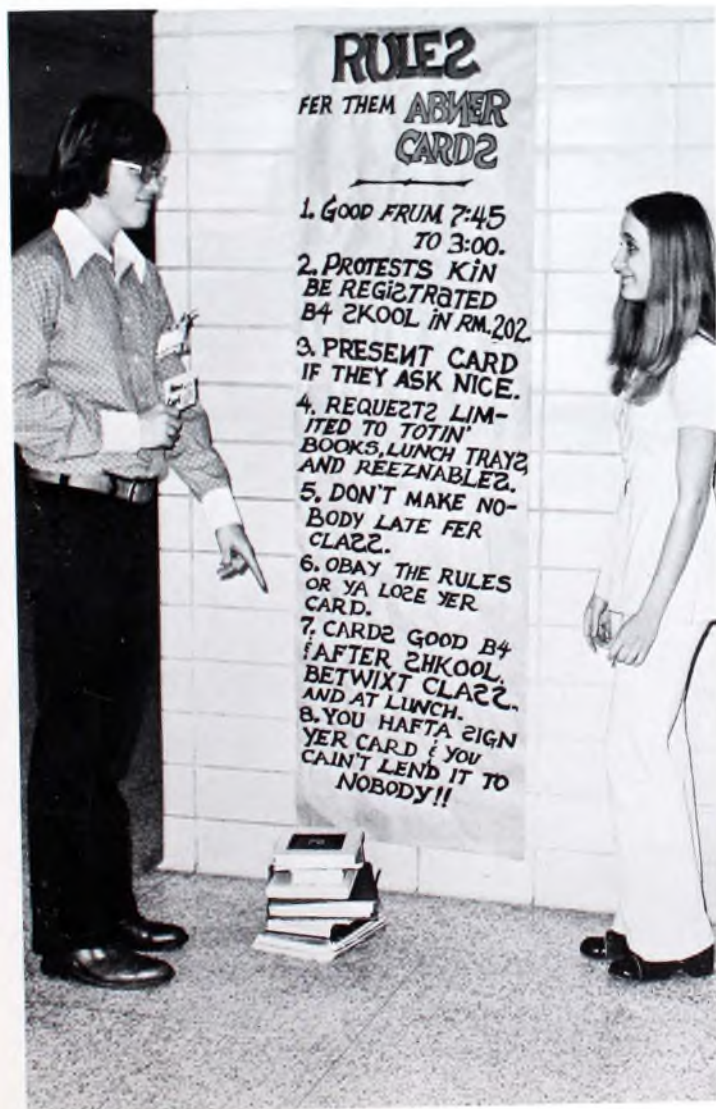 RULES
FER THEM ABNER
CARDS
1. GOOD FRUM 7:45
TO 3:00.
2. PROTESTS KIN
BE REGISTRATED
B4 SKOOL IN RM. 202.
3. PRESENT CARD
IF THEY ASK NICE.
4. REQUESTS LIM-
ITED TO TOTIN'
BOOKS, LUNCH TRAYS,
AND REEZNABLES.
5. DON'T MAKE NO-
BODY LATE FER
CLASS.
6. OBAY THE RULES
OR YA LOSE YER
CARD.
7. CARDS GOOD B4
& AFTER SHKOOL,
BETWIXT CLASS.
AND AT LUNCH.
8. YOU HAFTA SIGN
YER CARD & YOU
CAIN'T LEND IT TO
NOBODY!!